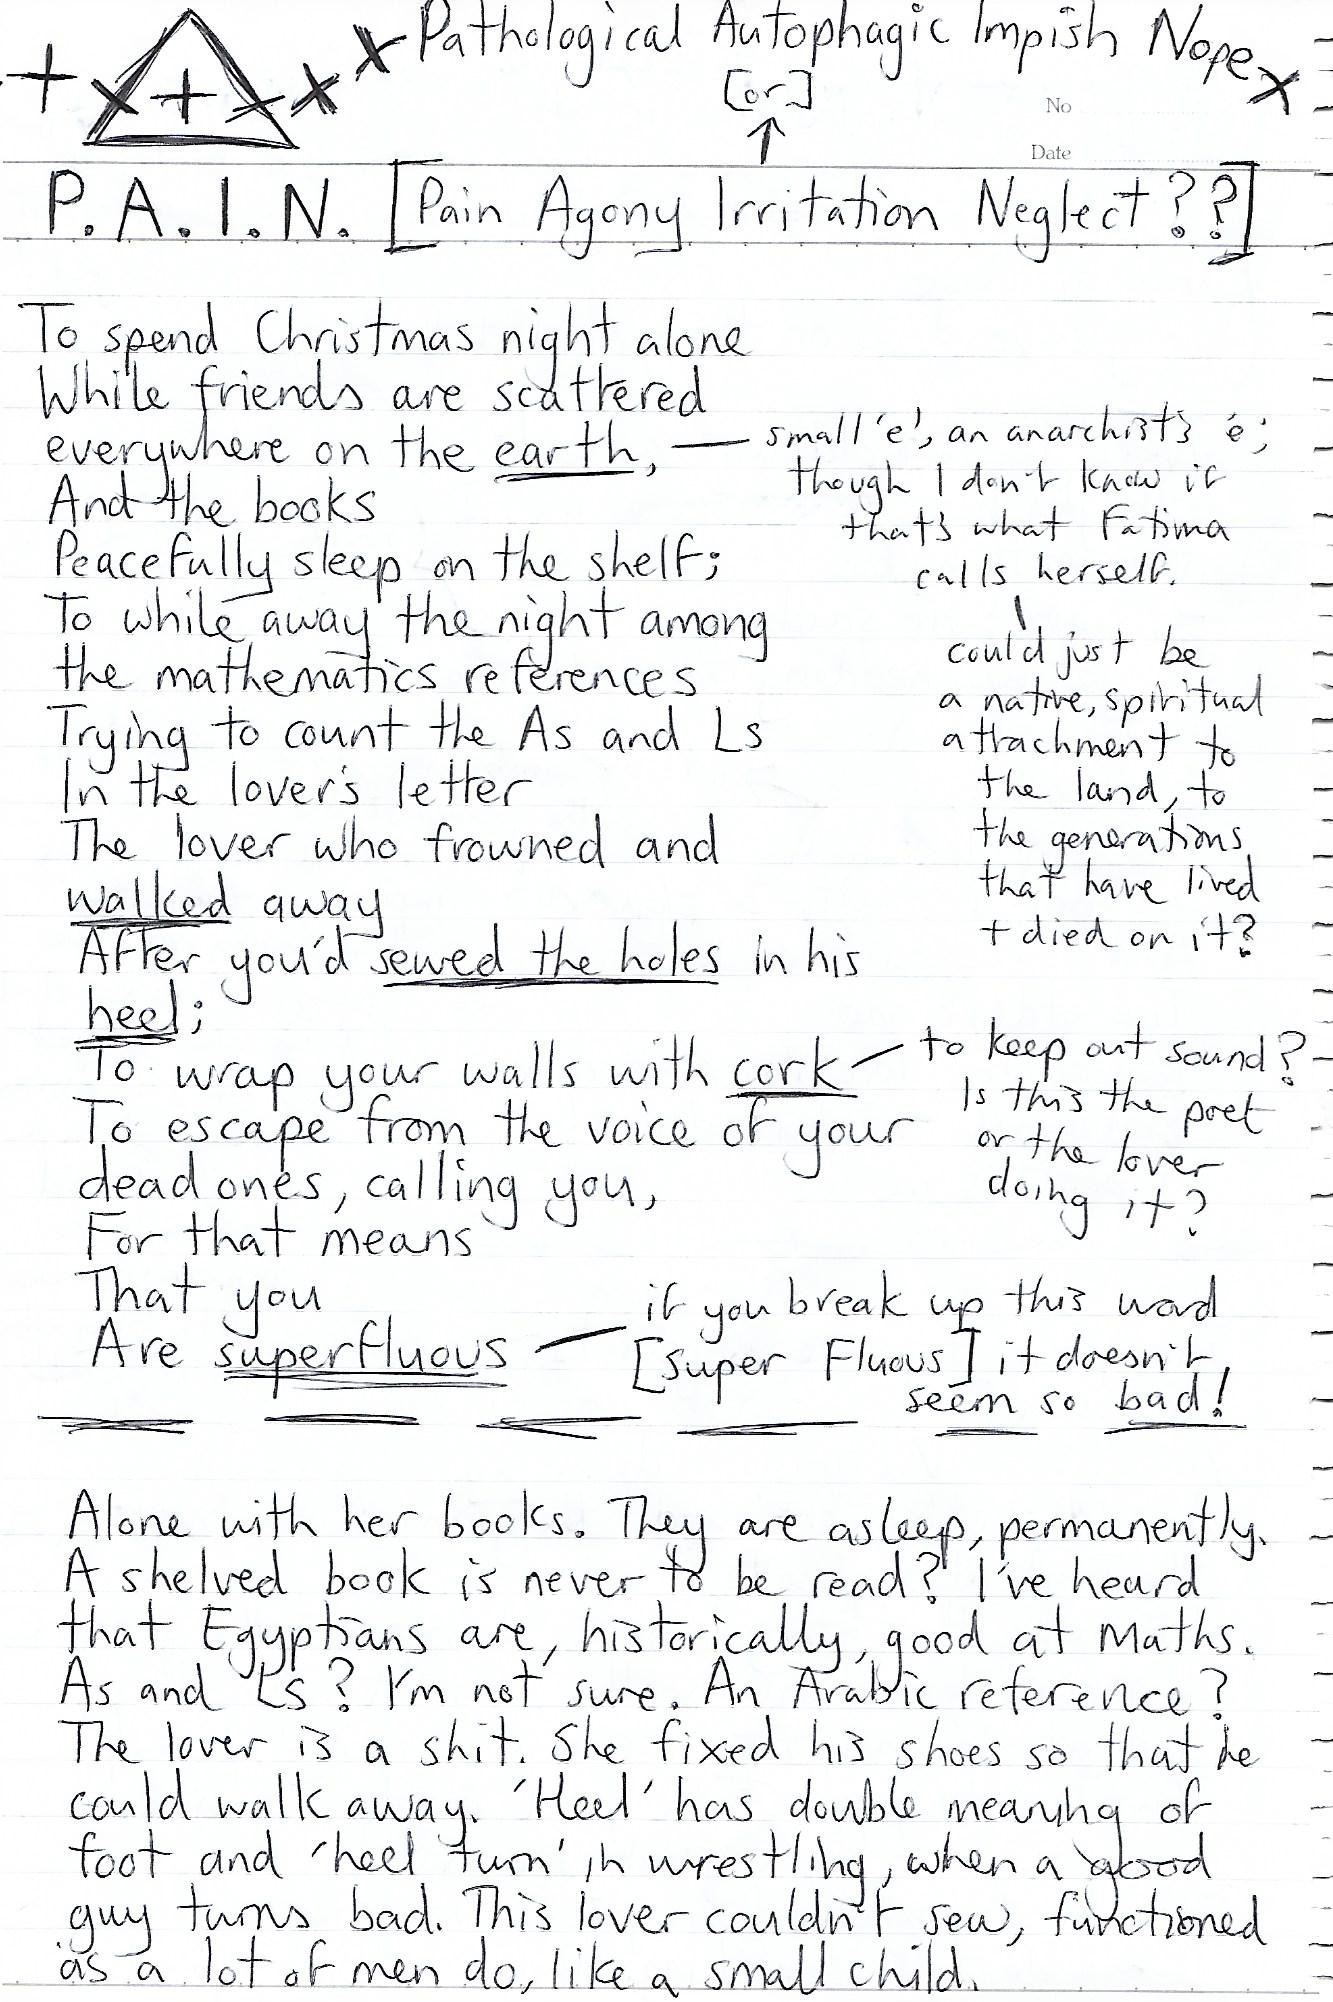 Pathological Autophagic Impish Nope
[or]
No
Date
P.A.I.N. [Pain Agony Irritation Neglect??]
To spend Christmas night alone
While friends are scattered
everywhere on the earth, — small 'e', an anarchist's 'e';
though I don't know if
that's what Fatima
calls herself.
could just be
a native, spiritual
attachment to
the land, to
the generations
that have lived
+ died on it?
And the books
Peacefully sleep on the shelf;
To while away the night among
the mathematics references
Trying to count the As and Ls
In the lover's letter
The lover who frowned and
walked away
After you'd sewed the holes in his
heel;
To wrap your walls with cork — to keep out sound?
Is this the poet
or the lover
doing it?
To escape from the voice of your
dead ones, calling you,
For that means
That you
Are superfluous — if you break up this word
[Super Fluous] it doesn't
seem so bad!
Alone with her books. They are asleep, permanently.
A shelved book is never to be read? I've heard
that Egyptians are, historically, good at Maths.
As and Ls? I'm not sure. An Arabic reference?
The lover is a shit. She fixed his shoes so that he
could walk away. 'Heel' has double meaning of
foot and 'heel turn' in wrestling, when a good
guy turns bad. This lover couldn't sew, functioned
as a lot of men do, like a small child.